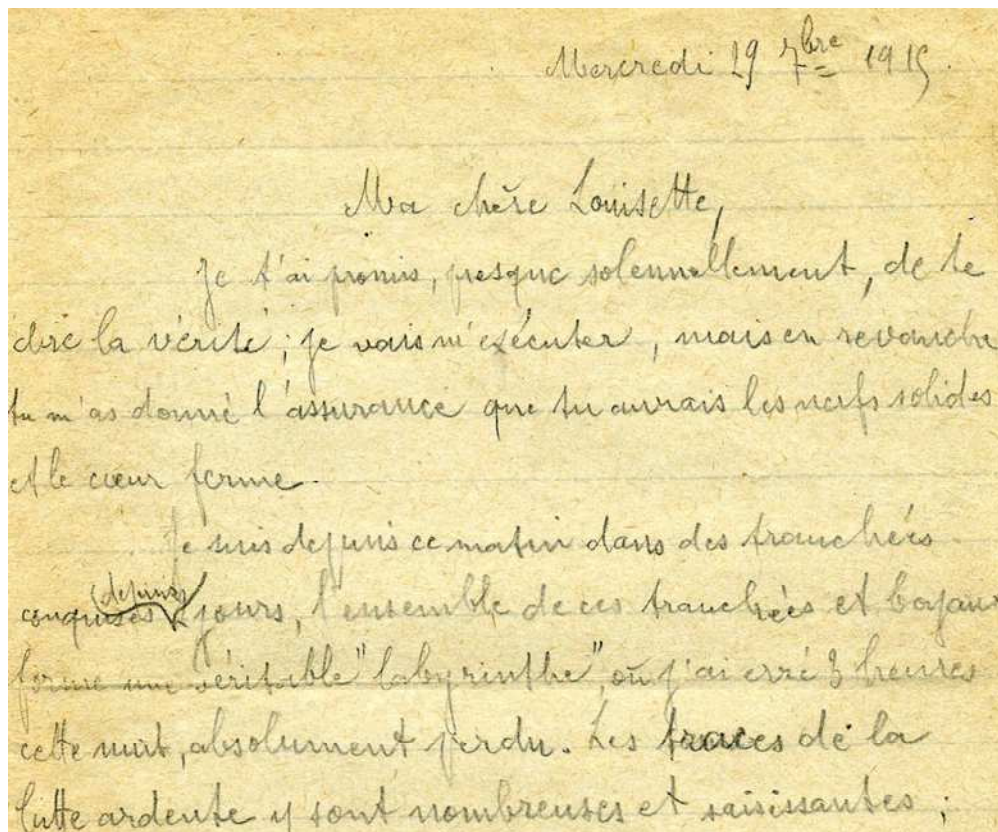 Mercredi 29 7bre 1915.
Ma chère Louisette,
Je t'ai promis, presque solennellement, de te
dire la vérité ; je vais m'exécuter, mais en revanche
tu m'as donné l'assurance que tu aurais les nerfs solides
et le cœur ferme.
Je suis depuis ce matin dans des tranchées
conquises depuis jours, l'ensemble de ces tranchées et boyaux
forme une véritable "labyrinthe", où j'ai erré 3 heures
cette nuit, absolument perdu. Les traces de la
lutte ardente y sont nombreuses et saisissantes ;